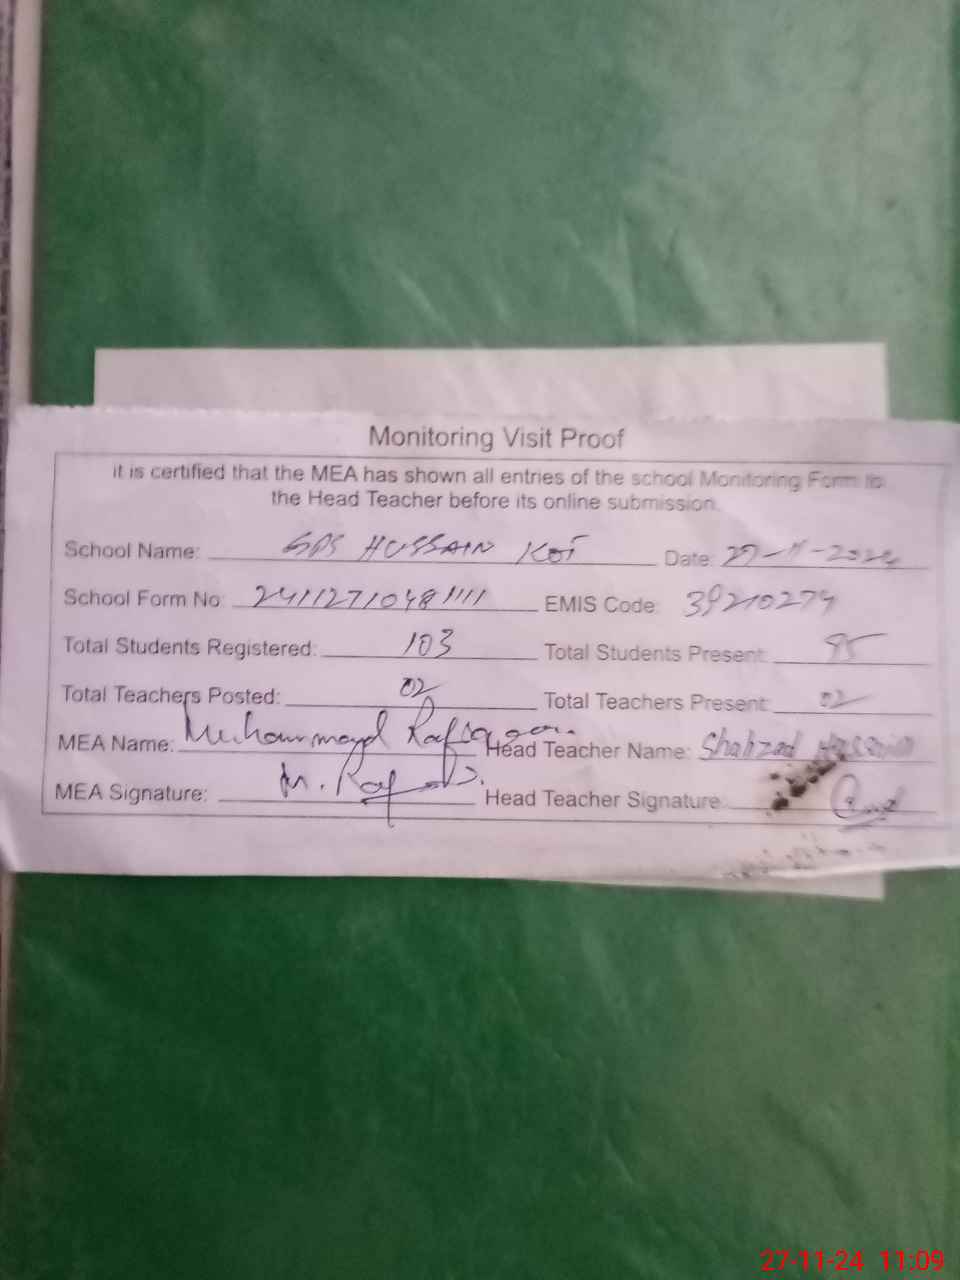 Monitoring Visit Proof
it is certified that the MEA has shown all entries of the school Monitoring Form to
the Head Teacher before its online submission.
School Name: GPS HUSSAIN KOT Date: 27-11-2024
School Form No: 24112710481111 EMIS Code: 39210274
Total Students Registered: 103 Total Students Present: 95
Total Teachers Posted: 02 Total Teachers Present: 02
MEA Name: Muhammad Head Teacher Name: Shahzad Hussain
MEA Signature: Head Teacher Signature:
27-11-24 11:09